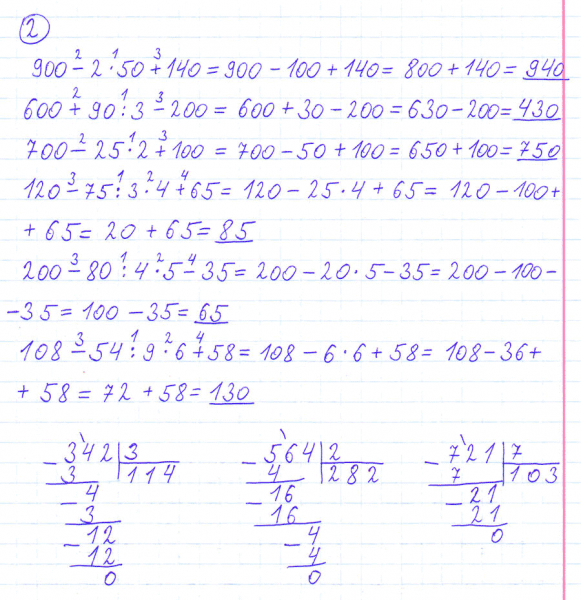 2
900 - 2 · 50 + 140 = 900 - 100 + 140 = 800 + 140 = 940
600 + 90 : 3 - 200 = 600 + 30 - 200 = 630 - 200 = 430
700 - 25 · 2 + 100 = 700 - 50 + 100 = 650 + 100 = 750
120 - 75 : 3 · 4 + 65 = 120 - 25 · 4 + 65 = 120 - 100 +
+ 65 = 20 + 65 = 85
200 - 80 : 4 · 5 - 35 = 200 - 20 · 5 - 35 = 200 - 100 -
- 35 = 100 - 35 = 65
108 - 54 : 9 · 6 + 58 = 108 - 6 · 6 + 58 = 108 - 36 +
+ 58 = 72 + 58 = 130
- 342 | 3
3 | 114
- 4
3
- 12
12
0
- 564 | 2
4 | 282
- 16
16
- 4
4
0
- 721 | 7
7 | 103
- 21
21
0